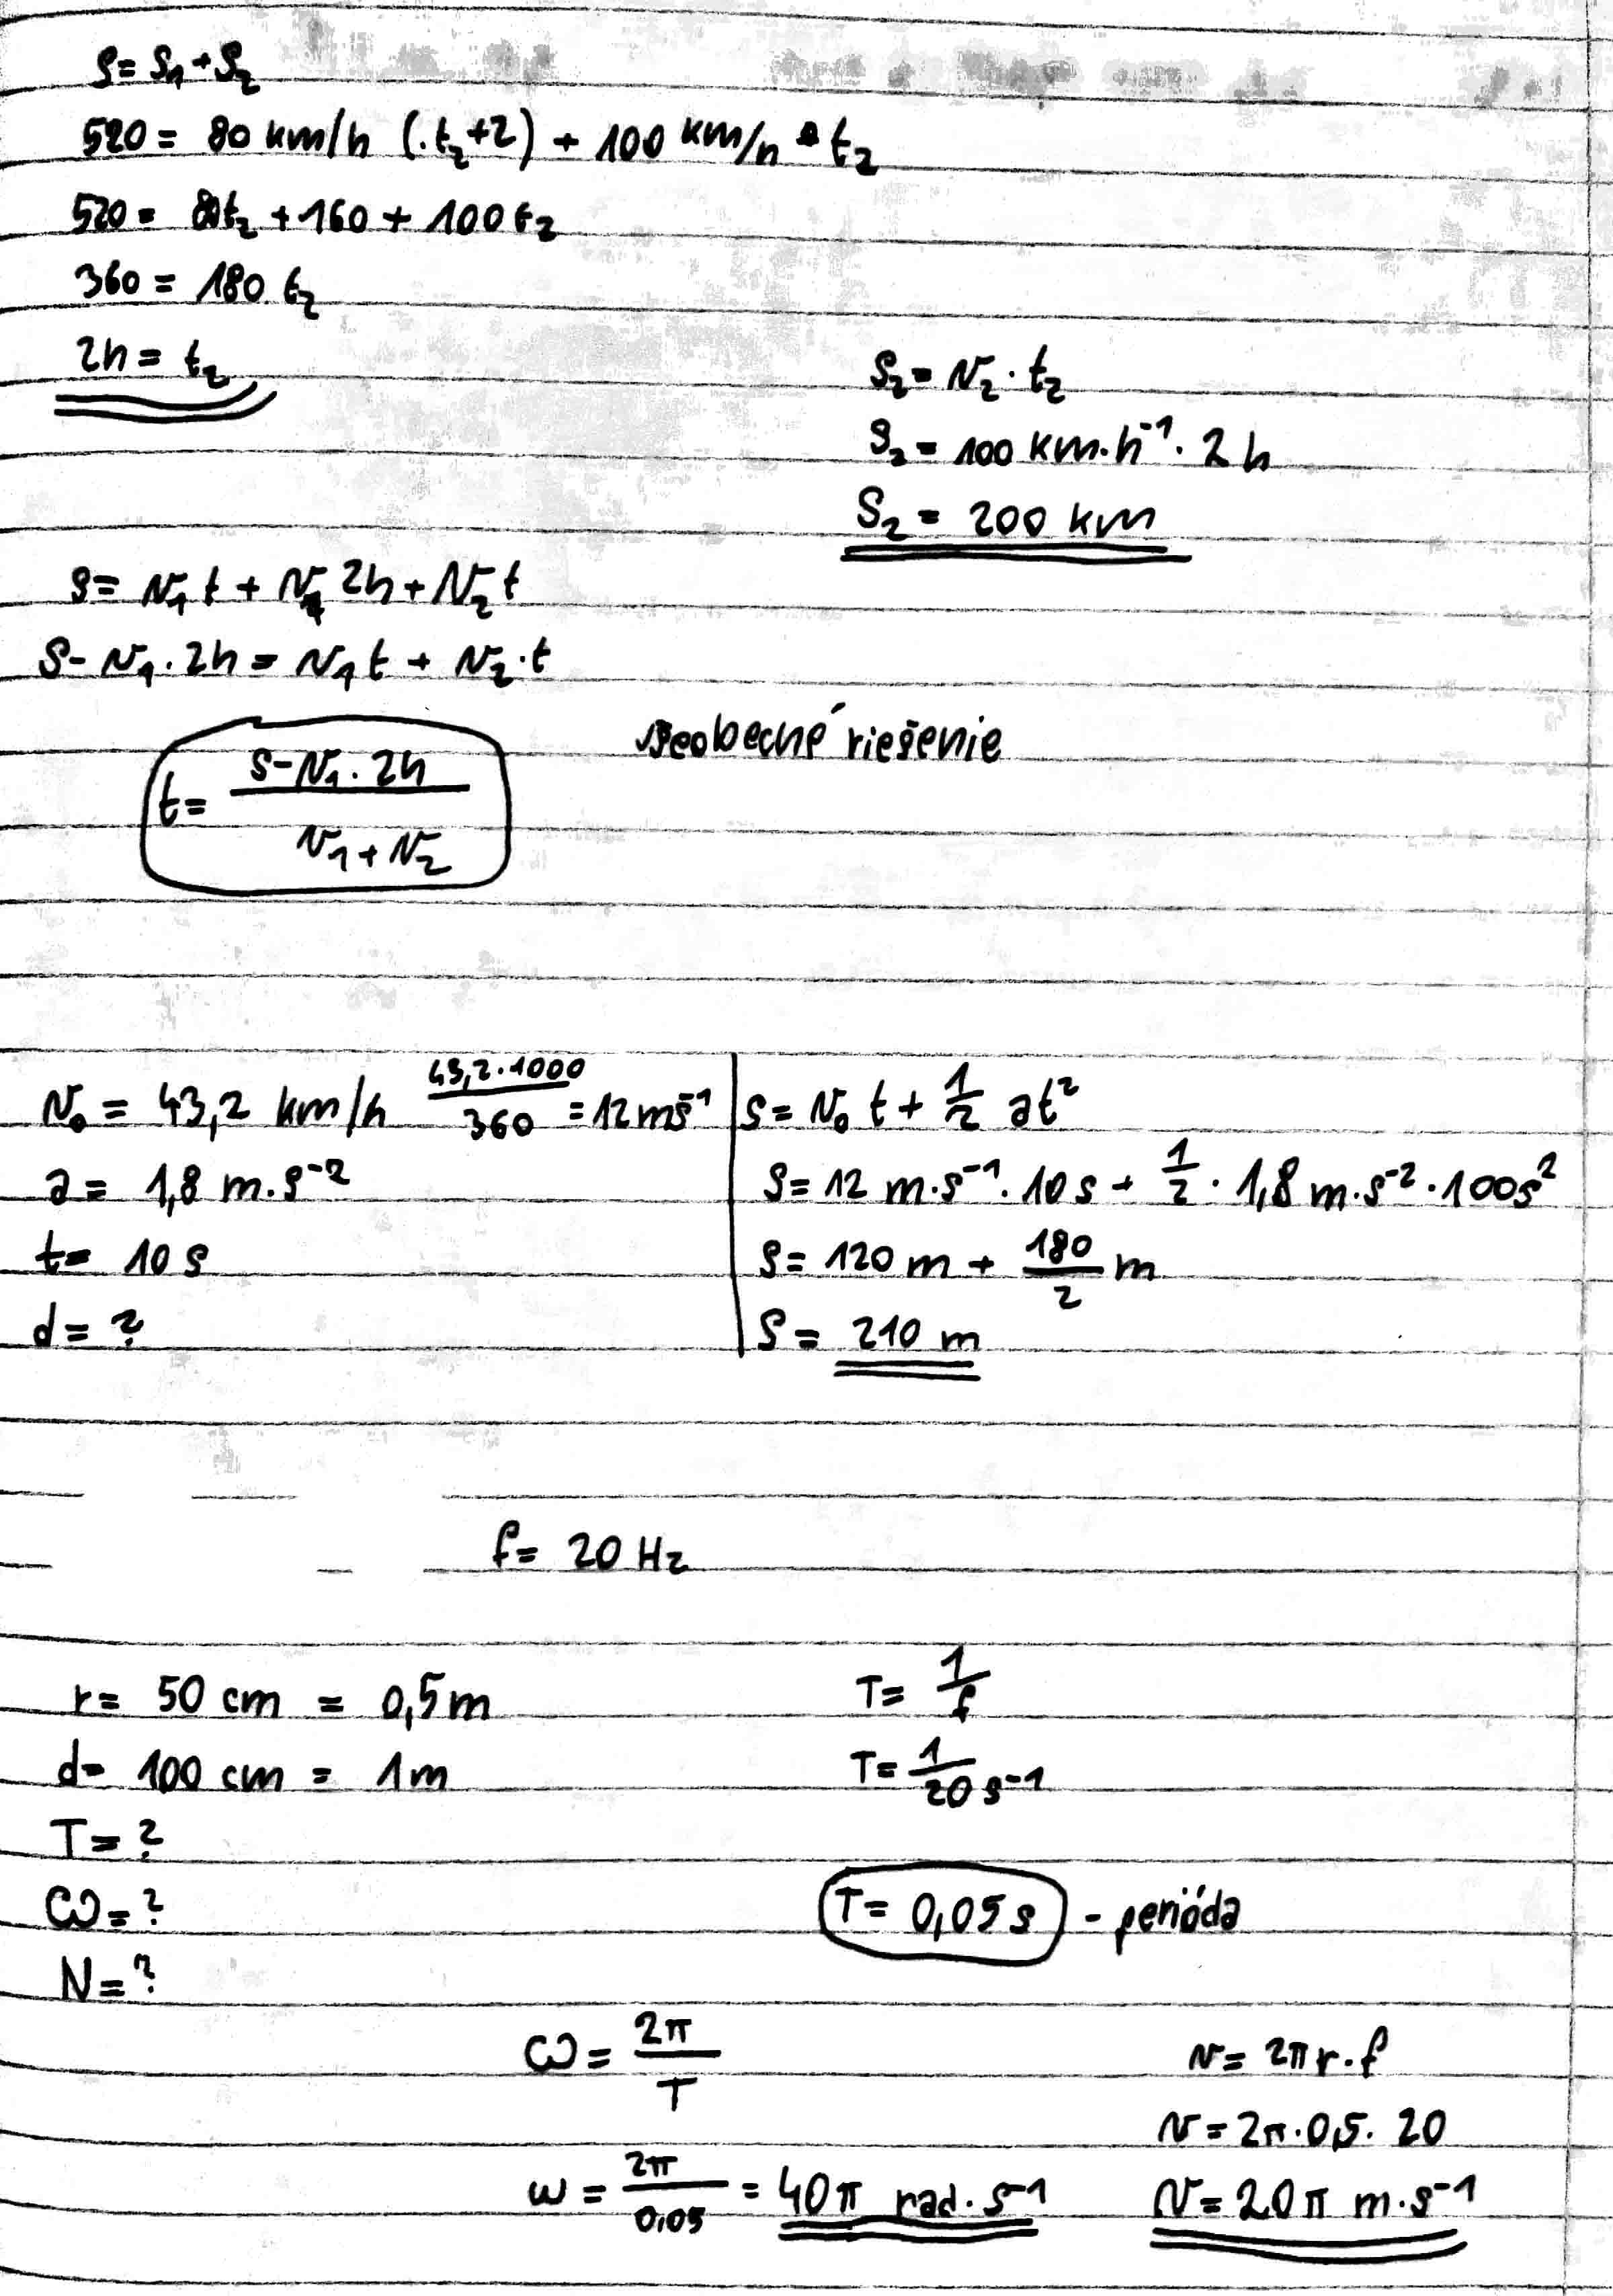 s = s₁ + s₂
520 = 80 km/h (.t₂+2) + 100 km/h • t₂
520 = 80t₂ + 160 + 100t₂
360 = 180 t₂
2h = t₂
s₂ = v₂ · t₂
s₂ = 100 km·h⁻¹ · 2 h
s₂ = 200 km
s = v₁ t + v₁ 2h + v₂ t
s - v₁ · 2h = v₁ t + v₂ · t
t = (s - v₁ · 2h) / (v₁ + v₂)
všeobecné riešenie
v₀ = 43,2 km/h (43,2 · 1000) / 360 = 12 ms⁻¹
a = 1,8 m·s⁻²
t = 10 s
d = ?
s = v₀ t + 1/2 at²
s = 12 m·s⁻¹ · 10 s + 1/2 · 1,8 m·s⁻² · 100s²
s = 120 m + 180/2 m
s = 210 m
f = 20 Hz
r = 50 cm = 0,5 m
d = 100 cm = 1 m
T = ?
ω = ?
N = ?
T = 1/f
T = 1/20 s⁻¹
T = 0,05 s - perióda
ω = 2π/T
ω = 2π/0,05 = 40π rad · s⁻¹
v = 2πr · f
v = 2π · 0,5 · 20
v = 20π m·s⁻¹